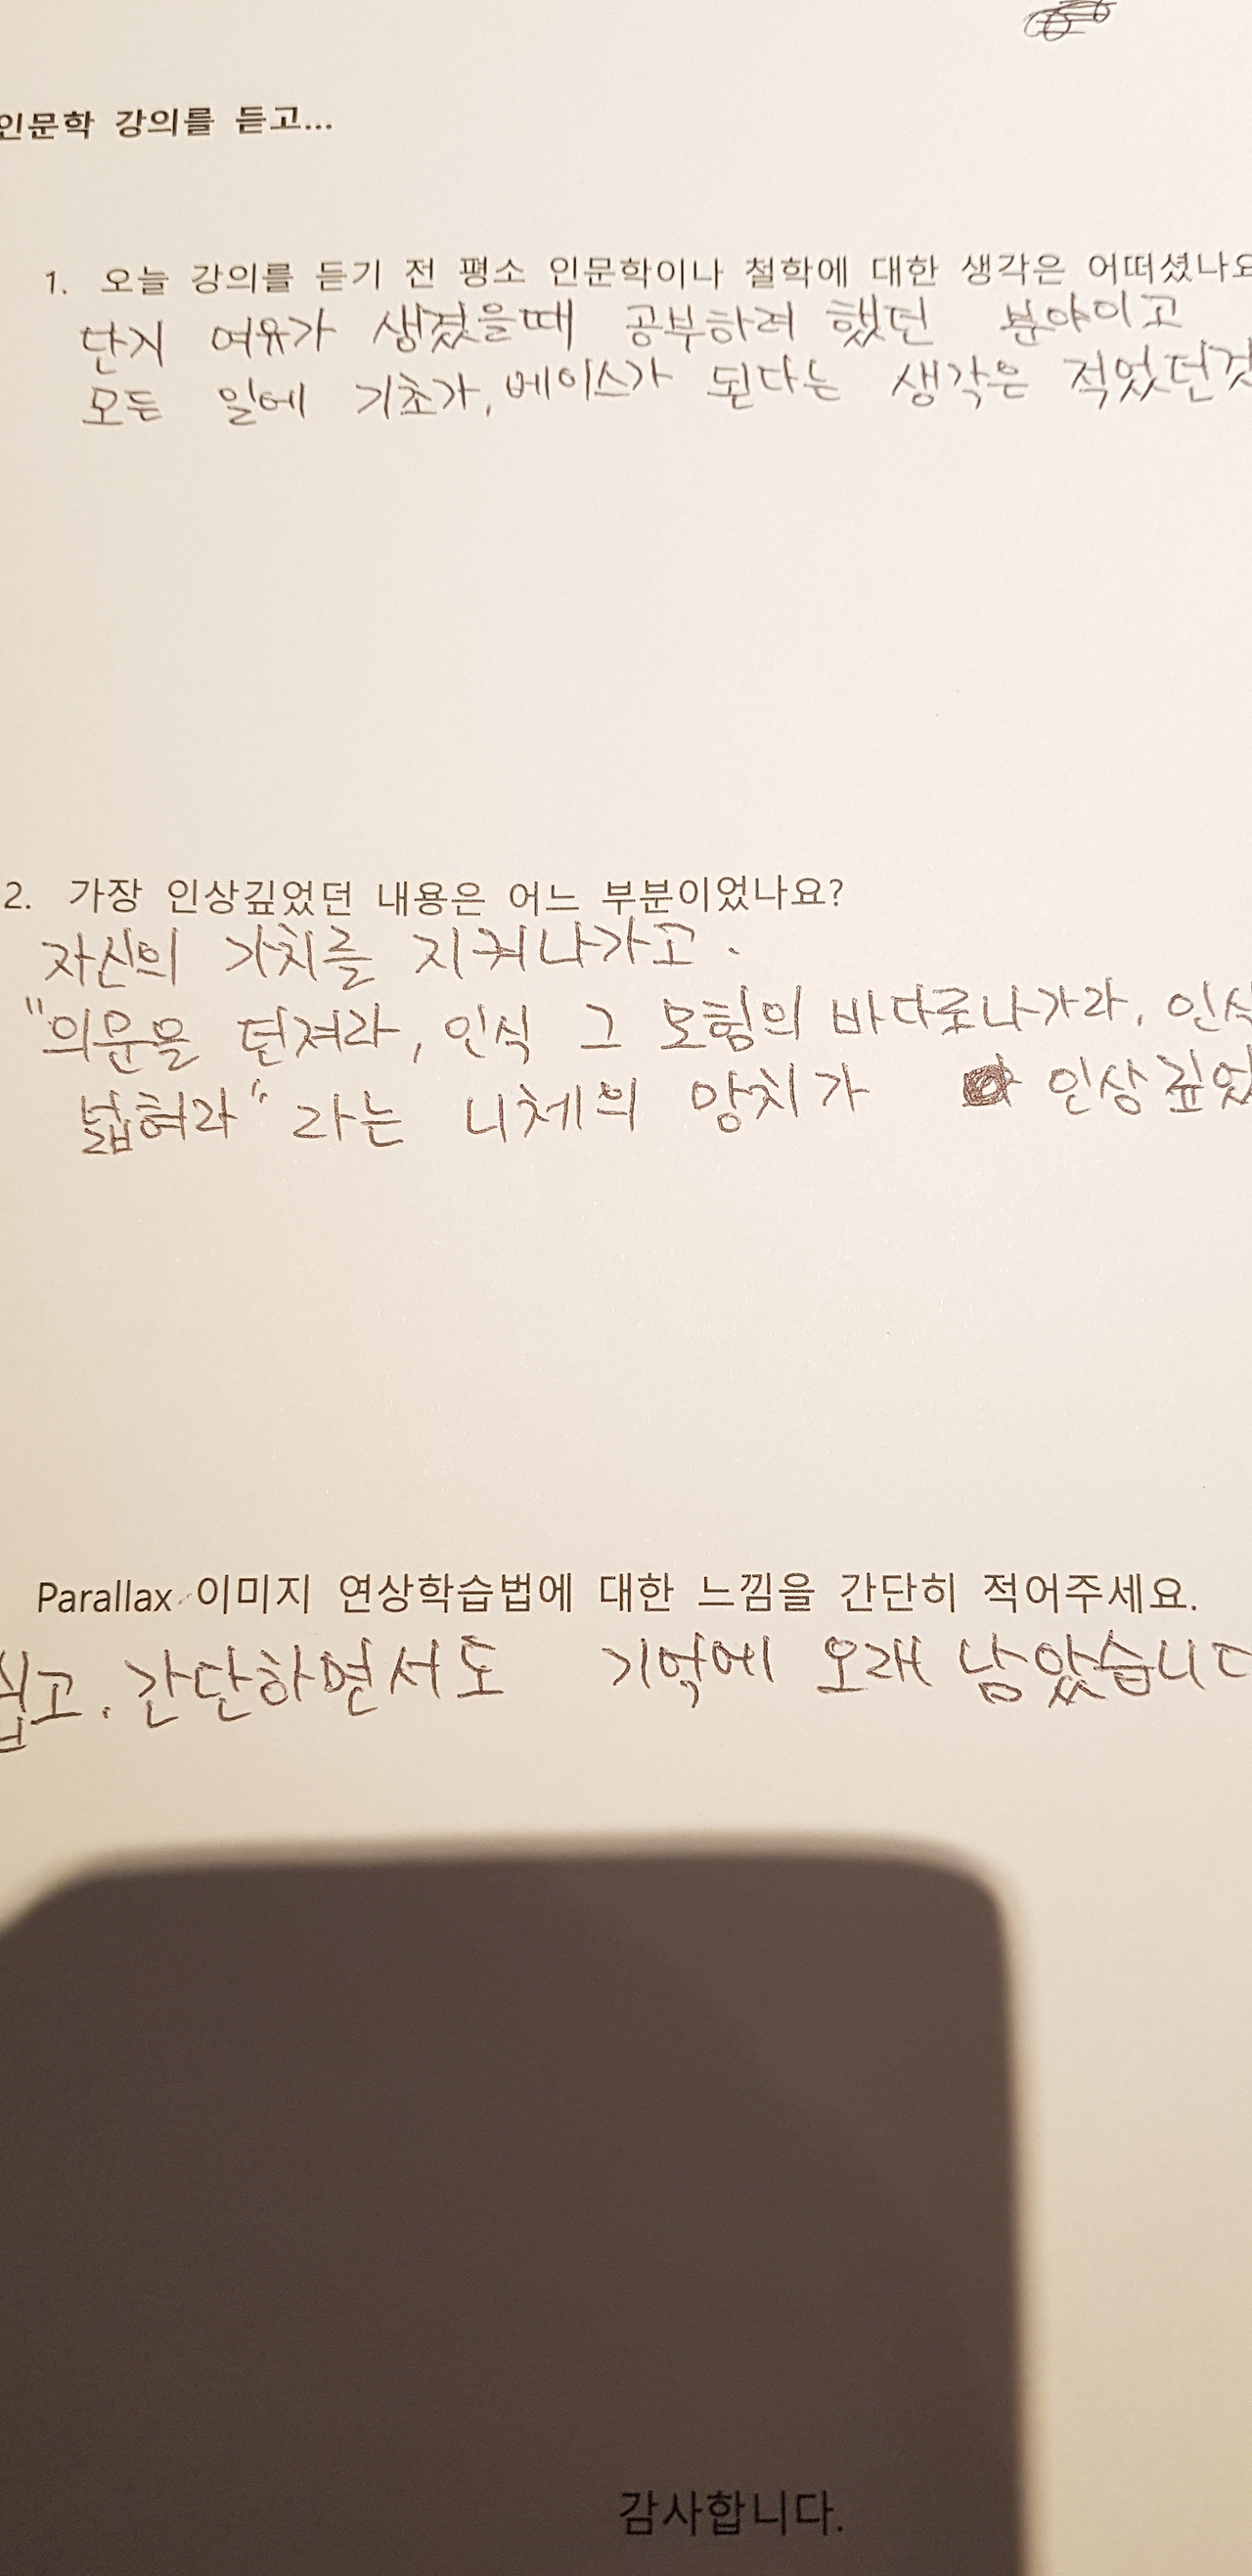 인문학 강의를 듣고...
1. 오늘 강의를 듣기 전 평소 인문학이나 철학에 대한 생각은 어떠셨나요
단지 여유가 생겼을때 공부하려 했던 분야이고
모든 일에 기초가, 베이스가 된다는 생각은 적었던것
2. 가장 인상깊었던 내용은 어느 부분이었나요?
자신의 가치를 지켜나가고.
"의문을 던져라, 인식 그 모험의 바다로나가라, 인식
넓혀라" 라는 니체의 망치가 인상깊었
Parallax 이미지 연상학습법에 대한 느낌을 간단히 적어주세요.
쉽고. 간단하면서도 기억에 오래 남았습니다
감사합니다.